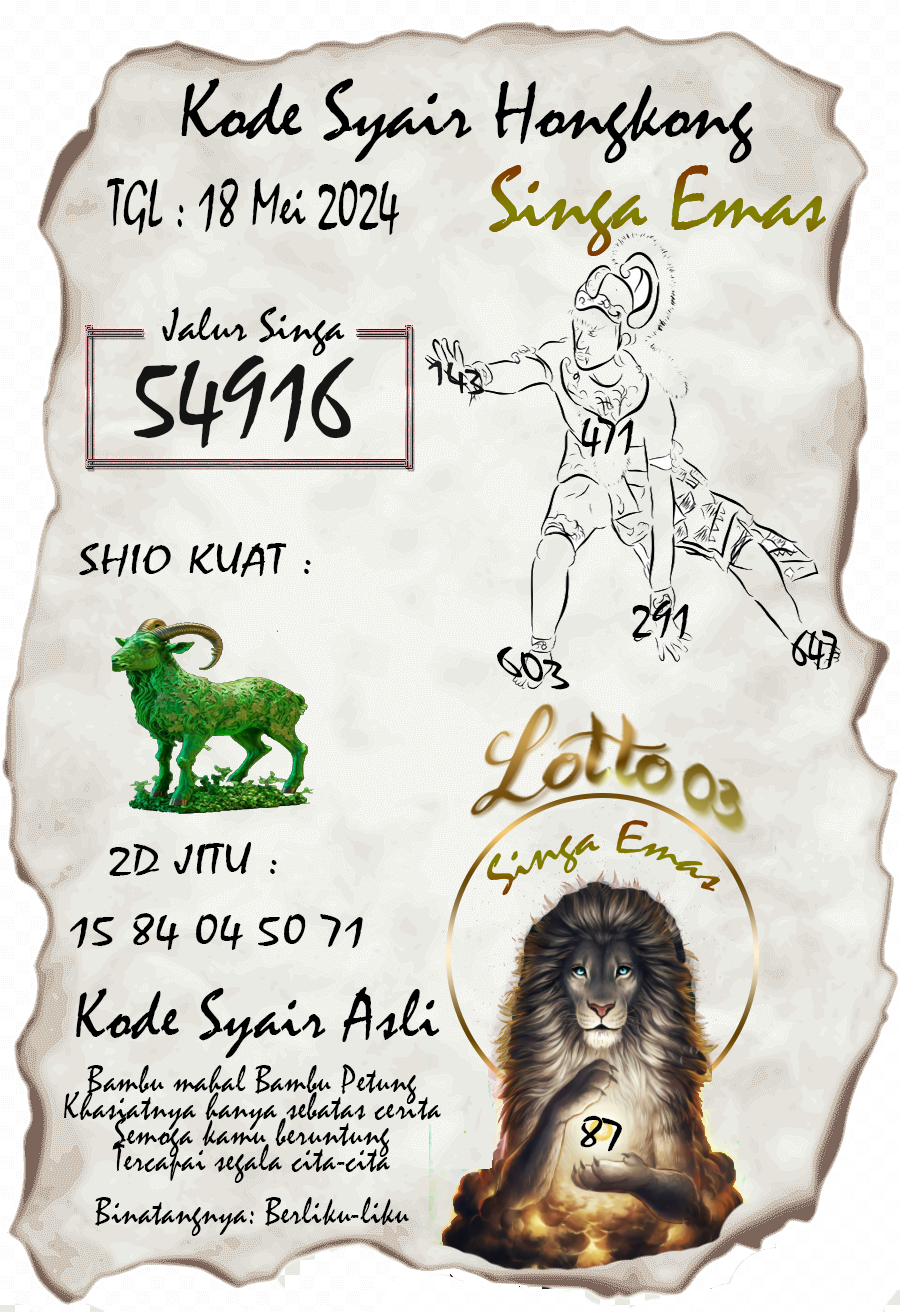 Kode Syair Hongkong
TGL : 18 Mei 2024
Singa Emas
Jalur Singa
54916
143
471
291
603
647
SHIO KUAT :
Lotto 03
Singa Emas
87
2D JITU :
15 84 04 50 71
Kode Syair Asli
Bambu mahal Bambu Petung
Khasiatnya hanya sebatas cerita
Semoga kamu beruntung
Tercapai segala cita-cita
Binatangnya: Berliku-liku